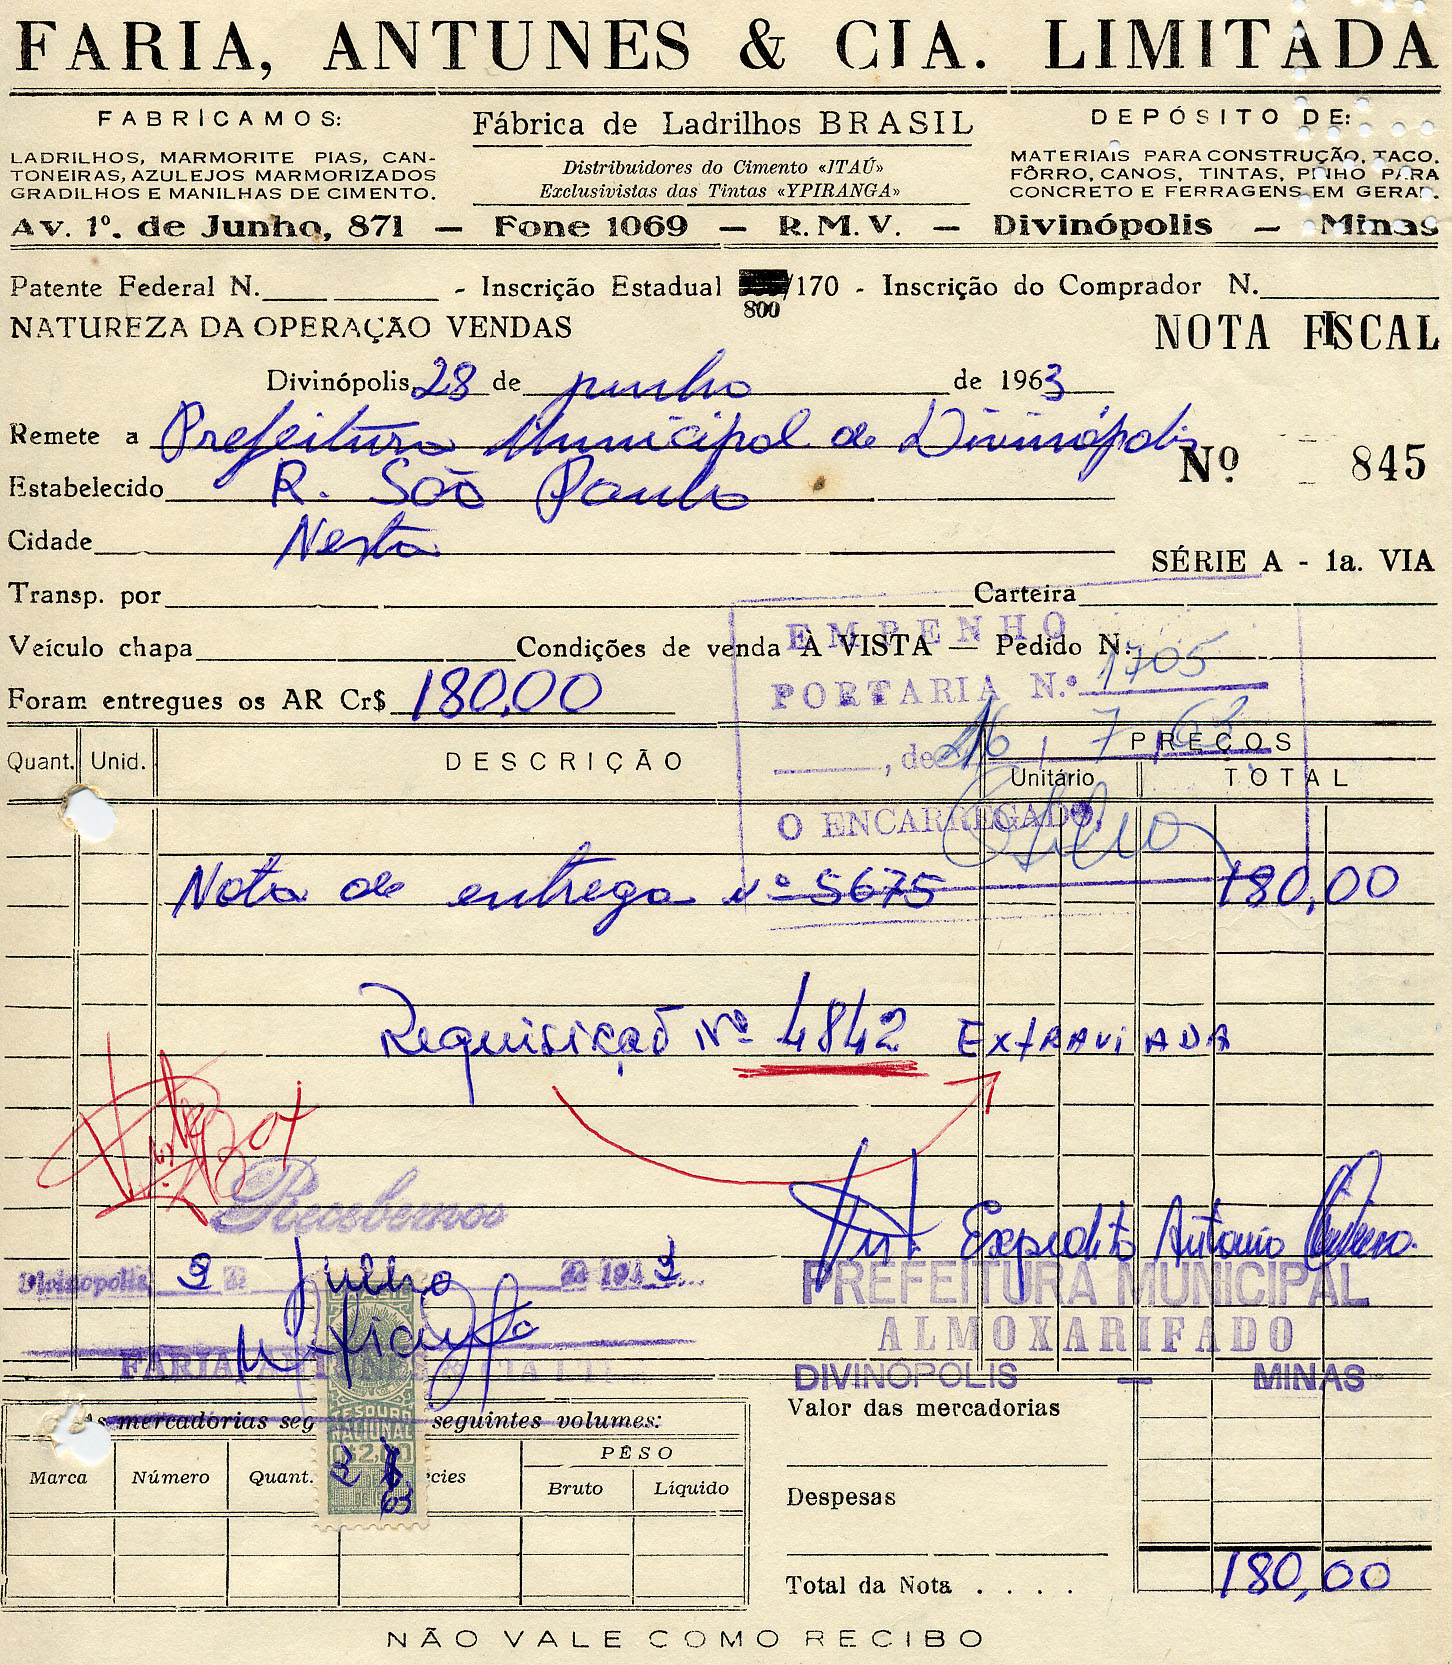 FARIA, ANTUNES & CIA. LIMITADA
FABRICAMOS:
LADRILHOS, MARMORITE PIAS, CAN-
TONEIRAS, AZULEJOS MARMORIZADOS
GRADILHOS E MANILHAS DE CIMENTO.
Fábrica de Ladrilhos BRASIL
Distribuidores do Cimento «ITAÚ»
Exclusivistas das Tintas «YPIRANGA»
DEPÓSITO DE:
MATERIAIS PARA CONSTRUÇÃO, TACO,
FÔRRO, CANOS, TINTAS, PINHO PARA
CONCRETO E FERRAGENS EM GERAL.
Av. 1º. de Junho, 871 — Fone 1069 — R.M.V. — Divinópolis — Minas
Patente Federal N. - Inscrição Estadual /170 - Inscrição do Comprador N.
800
NATUREZA DA OPERAÇÃO VENDAS
NOTA FISCAL
Divinópolis, 28 de junho de 1963
Remete a Prefeitura Municipal de Divinópolis
Nº 845
Estabelecido R. São Paulo
Cidade Nesta
SÉRIE A - 1a. VIA
Transp. por Carteira
Veículo chapa Condições de venda À VISTA — Pedido N.
EMPENHO
PORTARIA N.º 1705
Foram entregues os AR Cr$ 180,00
, de 16 / 7 / 63
O ENCARREGADO,
Quant. Unid. DESCRIÇÃO PREÇOS
Unitário TOTAL
Nota de entrega nº 5675 180,00
Requisição Nº 4842 EXTRAVIADA
Recebemos
Divinopolis, 9 de Julho de 1963
FARIA, ANTUNES & CIA LTDA
Expedito Antonio
PREFEITURA MUNICIPAL
ALMOXARIFADO
DIVINÓPOLIS — MINAS
As mercadorias seg seguintes volumes:
Marca Número Quant. écies PÊSO
Bruto Líquido
TESOURO
NACIONAL
63
Valor das mercadorias
Despesas
Total da Nota . . . . 180,00
NÃO VALE COMO RECIBO